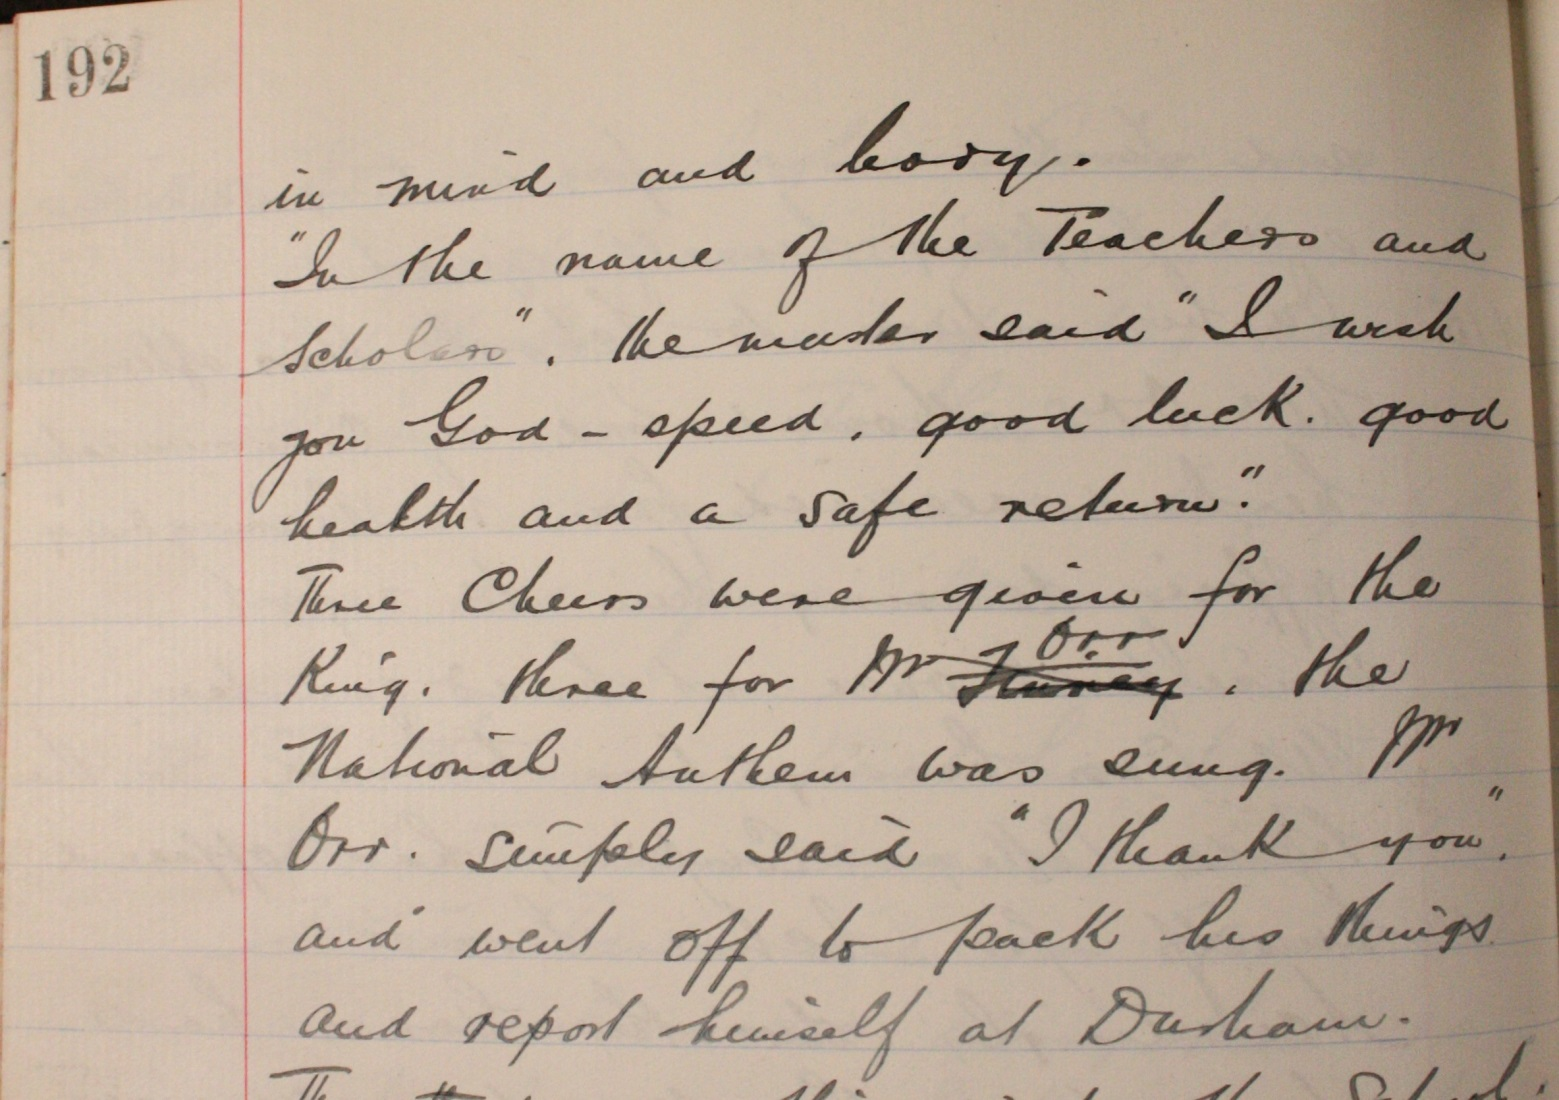 192
in mind and body.
"In the name of the Teachers and
Scholars". the master said "I wish
you God-speed, good luck. good
health and a safe return".
Three Cheers were given for the
King. three for Mr Orr. the
National Anthem was sung. Mr
Orr. simply said "I thank you",
and went off to pack his things
and report himself at Durham.